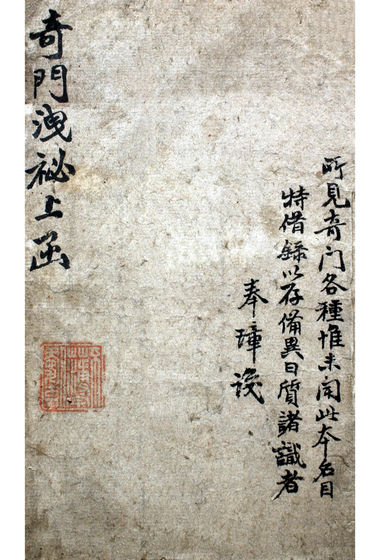 所見奇门各種惟未聞此本名目
特借録以存備異日質諸識者
奉璋
奇門洩祕上函